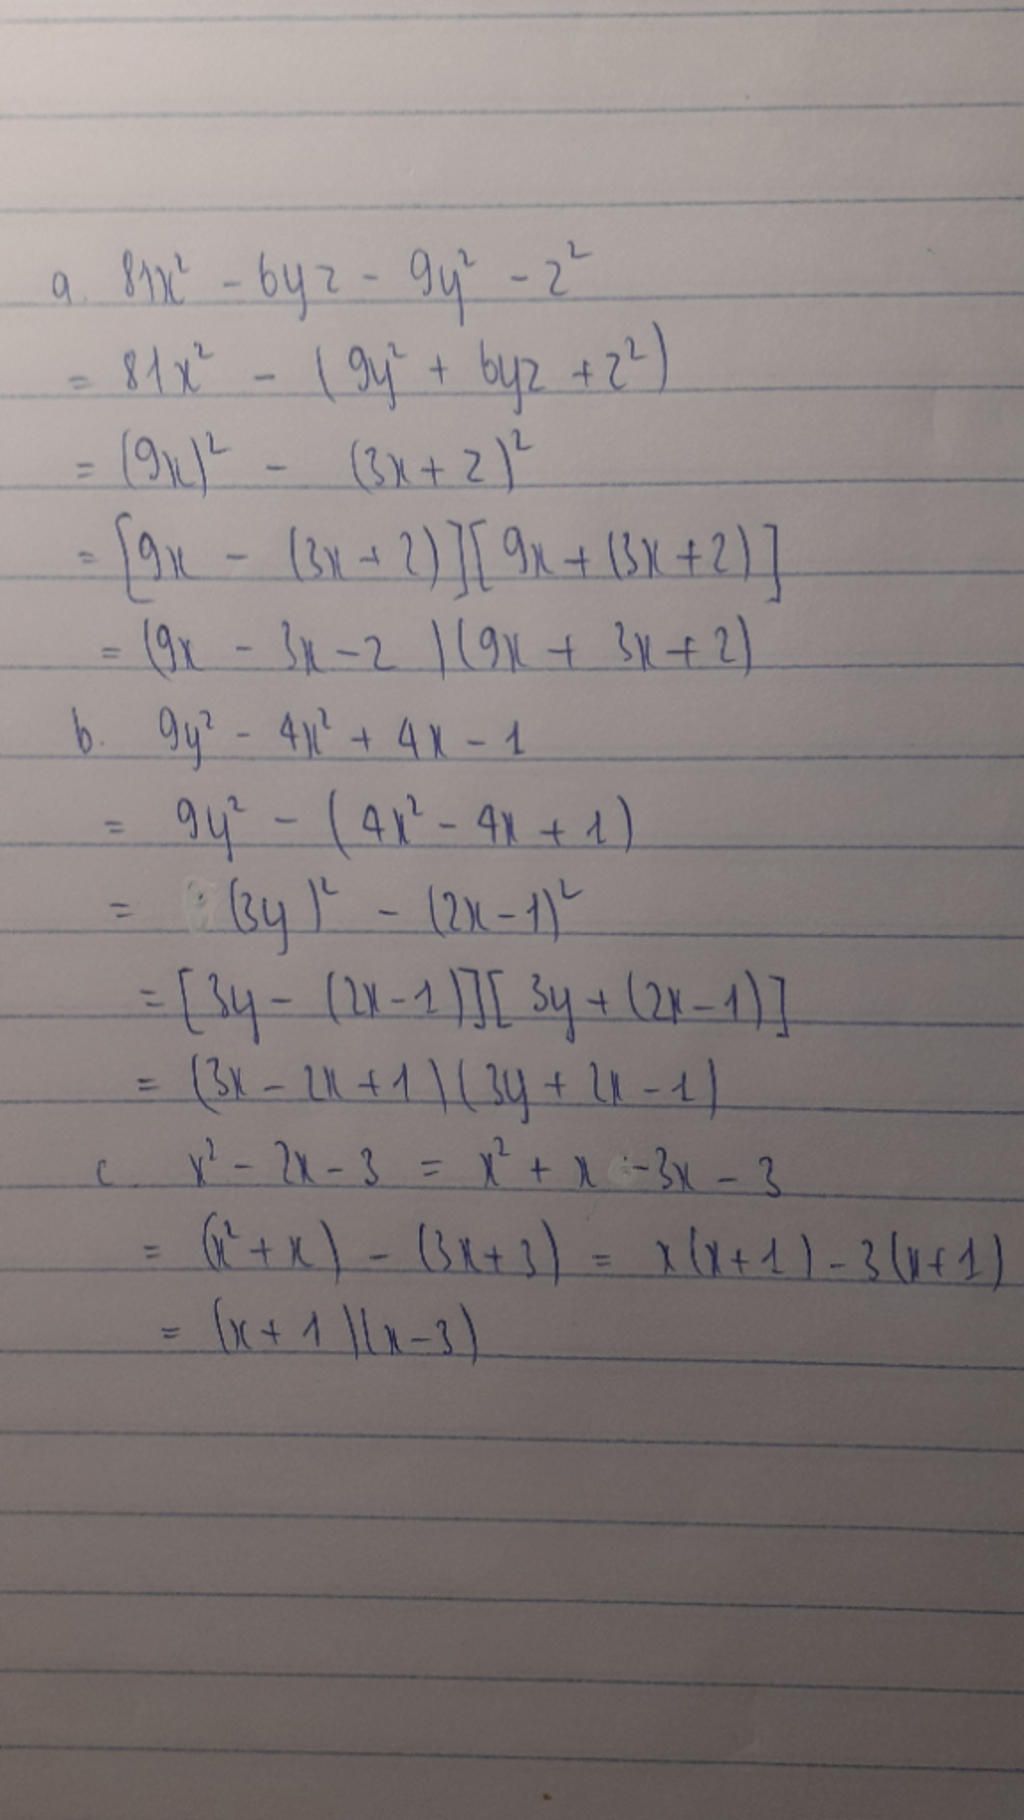 a. 81x² - 6yz - 9y² - z²
= 81x² - (9y² + 6yz + z²)
= (9x)² - (3x + z)²
= [9x - (3x + z)][9x + (3x + z)]
= (9x - 3x - z)(9x + 3x + z)
b. 9y² - 4x² + 4x - 1
= 9y² - (4x² - 4x + 1)
= (3y)² - (2x - 1)²
= [3y - (2x - 1)][3y + (2x - 1)]
= (3x - 2x + 1)(3y + 2x - 1)
c. x² - 2x - 3 = x² + x - 3x - 3
= (x² + x) - (3x + 3) = x(x + 1) - 3(x + 1)
= (x + 1)(x - 3)